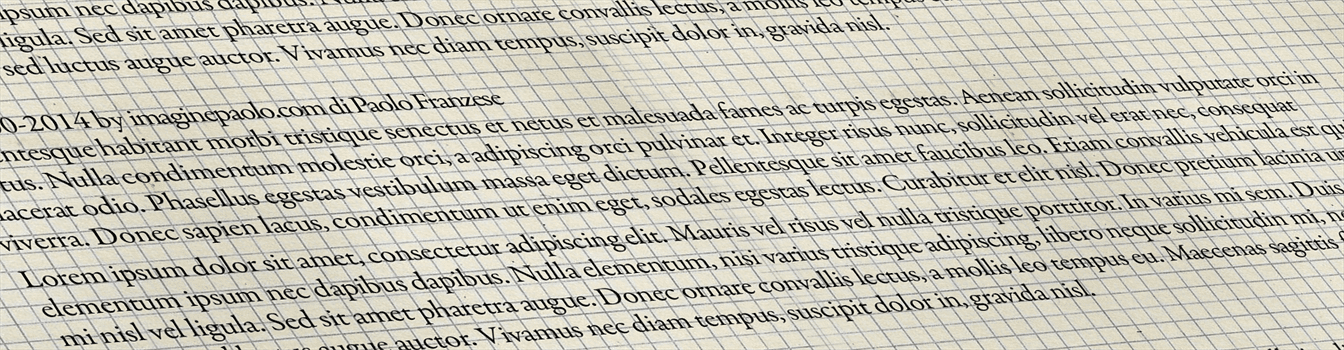 ipsum nec dapibus dapibus.
ligula. Sed sit amet pharetra augue. Donec ornare convallis lectus, a mollis leo tempus
sed luctus augue auctor. Vivamus nec diam tempus, suscipit dolor in, gravida nisl.
0-2014 by imaginepaolo.com di Paolo Franzese
ntesque habitant morbi tristique senectus et netus et malesuada fames ac turpis egestas. Aenean sollicitudin vulputate orci in
tus. Nulla condimentum molestie orci, a adipiscing orci pulvinar et. Integer risus nunc, sollicitudin vel erat nec, consequat
lacerat odio. Phasellus egestas vestibulum massa eget dictum. Pellentesque sit amet faucibus leo. Etiam convallis vehicula est
viverra. Donec sapien lacus, condimentum ut enim eget, sodales egestas lectus. Curabitur et elit nisl. Donec pretium lacinia
Lorem ipsum dolor sit amet, consectetur adipiscing elit. Mauris vel risus vel nulla tristique porttitor. In varius mi sem. Duis
elementum ipsum nec dapibus dapibus. Nulla elementum, nisi varius tristique adipiscing, libero neque sollicitudin mi,
mi nisl vel ligula. Sed sit amet pharetra augue. Donec ornare convallis lectus, a mollis leo tempus eu. Maecenas sagittis
augue auctor. Vivamus nec diam tempus, suscipit dolor in, gravida nisl.